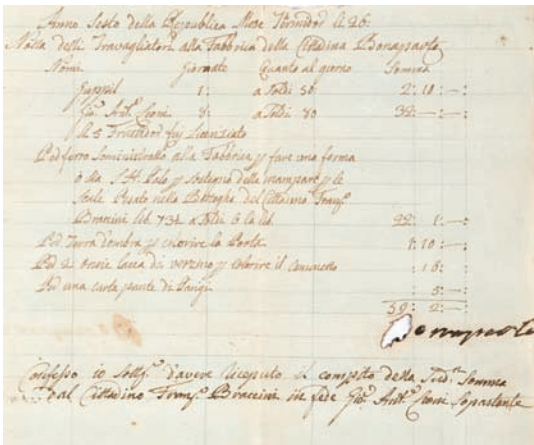 Anno Sesto della Republica Mese Termidor A 26:
Notta delli Travagliatori alla Fabbrica della Cittadina Bonaparte
Nomi Giornate Quanto al giorno Somma
1: a Soldi 50 2: 10: —:
Gio: Ant.º Leoni 8: a Soldi 80 32: —: —:
li 5 Fruttidor fu Licenziato
Per ferro Somministrato alla Fabbrica p fare una forma
o sia Palo p sostegno delle p le
Scale Pesato nella Bottegha del Cittadino Franc.º
Braccini lib. 73½ a Soldi 6 la lib. 22: 1: —:
Per Terra d'ombra p colorire la Porta : 10: —:
Per 2 oncie lacca di verzino p colorire il : 16: —:
Per una carta di Parigi : 5: —:
59: 2: —:
Bonaparte
Confesso io Sott.º d'avere riceputo il compito della Sud.ta Somma
dal Cittadino Franc.º Braccini in fede Gio: Ant.º Leoni Soprastante